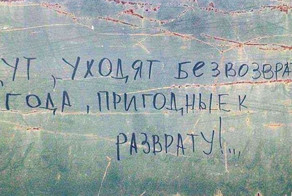 УТ, УХОДЯТ БЕЗВОЗВРА
ГОДА, ПРИГОДНЫЕ К
РАЗВРАТУ!...